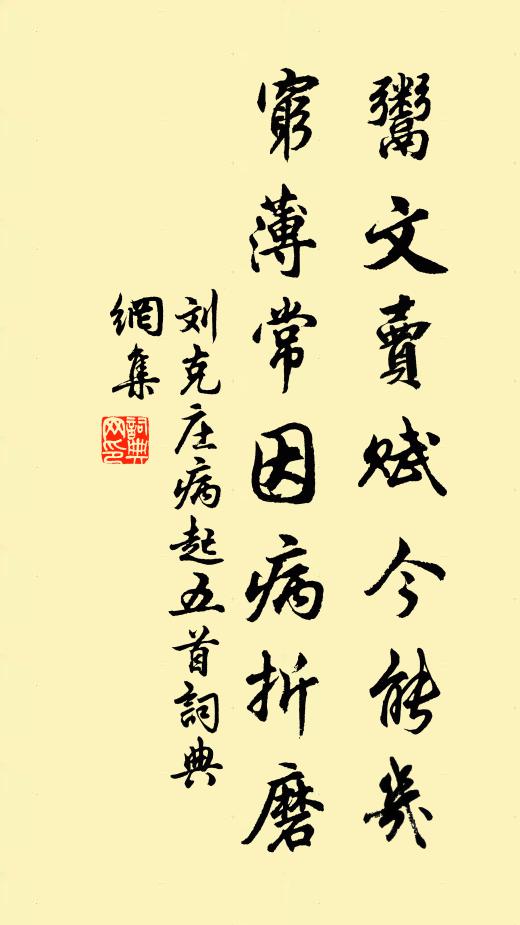 鬻文賣賦今能幾
窮薄常因病折磨
刘克庄病起五首詞典
網集
詞典網印